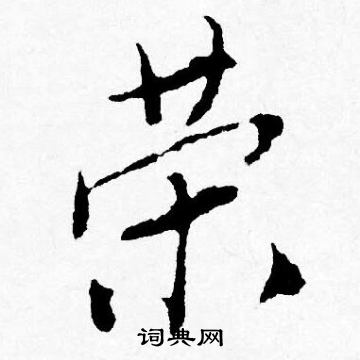 荣
词典网